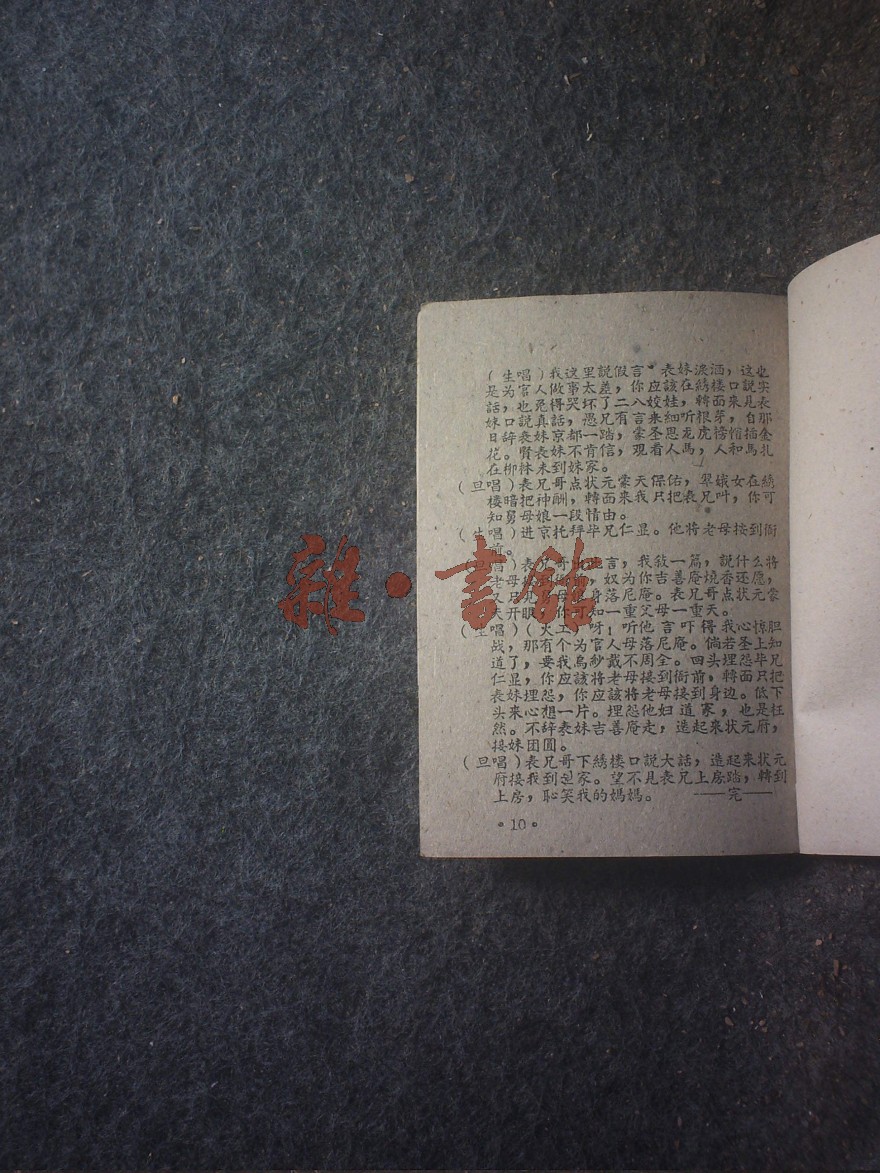 （生唱）我这里説假言 表妹淚洒，这也
是为官人做事太差，你应該在綉楼口説实
話，也免得哭坏了二八姣娃，轉面来見表
妹口説真話，愚兄有言来細听根芽，自那
日辞表妹京都一踏，蒙圣恩龙虎榜帽插金
花。賢表妹不肯信，观看人馬，人和馬扎
在柳林未到妹家。
（旦唱）表兄哥点状元蒙天保佑，翠娥女在綉
楼暗把神酬，轉面来我只把表兄叫，你可
知舅母娘一段情由。
（生唱）进京托拜毕兄仁显。他将老母接到衙
前。
表兄哥 言，我敘一篇，説什么将
老母 ，奴为你吉善庵燒香还愿，
母 身落尼庵。表兄哥点状元蒙
天开眼，你可知一重父母一重天。
（生唱）（火工）呀！听他言吓得我心惊胆
战，那有个为官人母落尼庵。倘若圣上知
道了，要我烏紗戴不周全。四头埋怨毕兄
仁显，你应該将老母接到衙前，轉面只把
表妹埋怨，你应該将老母接到身边。低下
头来心想一片。埋怨他妇道家，也是枉
然。不辞表妹吉善庵走，造起来状元府，
接妹团圓。
（旦唱）表兄哥下綉楼口説大話，造起来状元
府接我到 家。望不見表兄上房踏，轉到
上房，恥笑我的媽媽。 ——完——
•10•
雜·書館